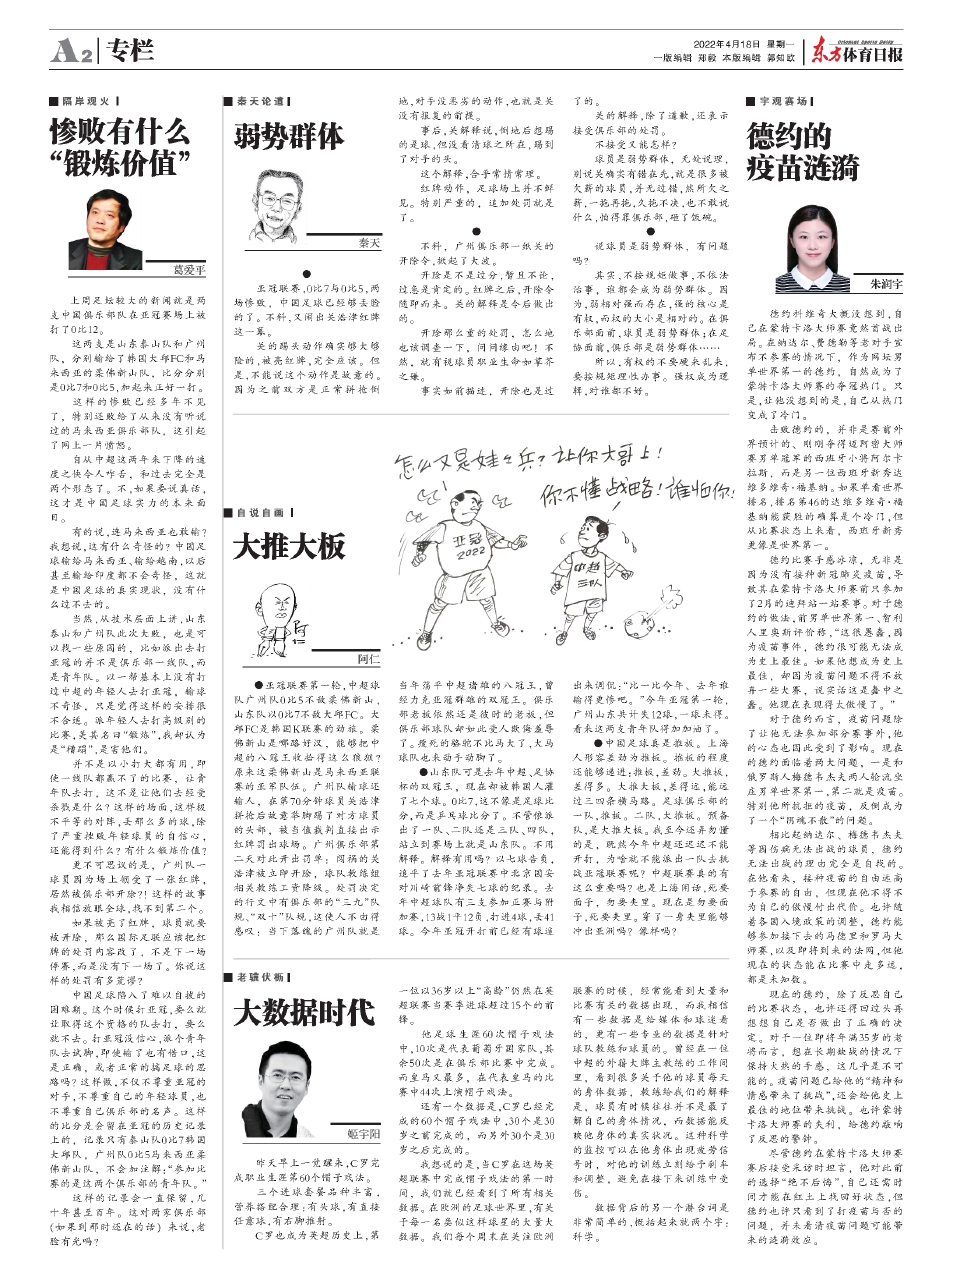 A2 专栏
2022年4月18日 星期一
一版编辑 郑毅 本版编辑 郭知欧
Oriental Sports Daily
东方体育日报
隔岸观火
惨败有什么
“锻炼价值”
葛爱平
上周足坛较大的新闻就是两
支中国俱乐部队在亚冠赛场上被
打了0比12。
这两支是山东泰山队和广州
队，分别输给了韩国大邱FC和马
来西亚的柔佛新山队，比分分别
是0比7和0比5，加起来正好一打。
这样的惨败已经多年不见
了，特别还败给了从来没有听说
过的马来西亚俱乐部队，这引起
了网上一片愤怒。
自从中超这两年来下降的速
度之快令人咋舌，和过去完全是
两个形态了。不，如果要说真话，
这才是中国足球实力的本来面
目。
有的说，连马来西亚也敢输？
我想说，这有什么奇怪的？中国足
球输给马来西亚、输给越南，以后
甚至输给印度都不会奇怪，这就
是中国足球的真实现状，没有什
么过不去的。
当然，从技术层面上讲，山东
泰山和广州队此次大败，也是可
以找一些原因的，比如派出去打
亚冠的并不是俱乐部一线队，而
是青年队。以一帮基本上没有打
过中超的年轻人去打亚冠，输球
不奇怪，只是觉得这样的安排很
不合适。派年轻人去打高级别的
比赛，美其名曰“锻炼”，我却认为
是“糟蹋”，是害他们。
并不是以小打大都有用，即
使一线队都赢不了的比赛，让青
年队去打，这不是让他们去经受
杀戮是什么？这样的场面，这样极
不平等的对阵，丢那么多的球，除
了严重挫败年轻球员的自信心，
还能得到什么？有什么锻炼价值？
更不可思议的是，广州队一
球员因为场上领受了一张红牌，
居然被俱乐部开除？！这样的故事
我相信放眼全球，找不到第二个。
如果被亮了红牌，球员就要
被开除，那么国际足联应该把红
牌的处罚内容改了，不是下一场
停赛，而是没有下一场了。你说这
样的处罚有多荒谬？
中国足球陷入了难以自拔的
困难期。这个时候打亚冠，要么就
让取得这个资格的队去打，要么
就不去。打亚冠没信心，派个青年
队去试脚，即使输了也有借口，这
是正确，或者正常的搞足球的思
路吗？这样做，不仅不尊重亚冠的
对手，不尊重自己的年轻球员，也
不尊重自己俱乐部的名声。这样
的比分是会留在亚冠的历史记录
上的，记录只有泰山队0比7韩国
大邱队，广州队0比5马来西亚柔
佛新山队，不会加注解：“参加比
赛的是这两个俱乐部的青年队。”
这样的记录会一直保留，几
十年甚至百年。这对两家俱乐部
（如果到那时还在的话）来说，老
脸有光吗？
秦天论道
弱势群体
秦天
●
亚冠联赛，0比7与0比5，两
场惨败，中国足球已经够丢脸
的了。不料，又闹出关浩津红牌
这一幕。
关的踢头动作确实够大够
险的，被亮红牌，完全应该。但
是，不能说这个动作是故意的。
因为之前双方是正常拼抢倒
地，对手没恶劣的动作，也就是关
没有报复的前提。
事后，关解释说，倒地后想踢
的是球，但没看清球之所在，踢到
了对手的头。
这个解释，合乎常情常理。
红牌动作，足球场上并不鲜
见。特别严重的，追加处罚就是
了。
●
不料，广州俱乐部一纸关的
开除令，掀起了大波。
开除是不是过分，暂且不论，
过急是肯定的。红牌之后，开除令
随即而来。关的解释是今后做出
的。
开除那么重的处罚，怎么地
也该调查一下，问问缘由吧！不
然，就有视球员职业生命如草芥
之嫌。
事实如前描述，开除也是过
了的。
关的解释，除了道歉，还表示
接受俱乐部的处罚。
不接受又能怎样？
球员是弱势群体，无处说理，
别说关确实有错在先，就是很多被
欠薪的球员，并无过错，然所欠之
薪，一拖再拖，久拖不决，也不敢说
什么，怕得罪俱乐部，砸了饭碗。
●
说球员是弱势群体，有问题
吗？
其实，不按规矩做事，不依法
治事，谁都会成为弱势群体。因
为，弱相对强而存在，强的核心是
有权，而权的大小是相对的。在俱
乐部面前，球员是弱势群体；在足
协面前，俱乐部是弱势群体……
所以，有权的不要硬来乱来，
要按规矩理性办事。强权成为逻
辑，对谁都不好。
怎么又是娃娃兵？让你大哥上！
你不懂战略！谁怕你！
亚冠
2022
中超
三队
自说自画
大推大板
阿仁
阿仁
●亚冠联赛第一轮，中超球
队广州队0比5不敌柔佛新山，
山东队以0比7不敌大邱FC。大
邱FC是韩国K联赛的劲旅。柔
佛新山是哪路好汉，能够把中
超的八冠王收拾得这么狼狈？
原来这柔佛新山是马来西亚联
赛的亚军队伍。广州队输球还
输人，在第70分钟球员关浩津
拼抢后故意举脚踢了对方球员
的头部，被当值裁判直接出示
红牌罚出球场。广州俱乐部第
二天对此开出罚单：闯祸的关
浩津被立即开除，球队教练组
相关教练工资降级。处罚决定
的行文中有俱乐部的“三九”队
规、“双十”队规，这使人不由得
感叹：当下落魄的广州队就是
当年荡平中超诸雄的八冠王，曾
经力克亚冠群雄的双冠王。俱乐
部老板依然还是彼时的老板，但
俱乐部球队却如此受人欺侮羞辱
了。瘦死的骆驼不比马大了，大马
球队也来动手动脚了。
●山东队可是去年中超、足协
杯的双冠王，现在却被韩国人灌
了七个球。0比7，这不像是足球比
分，而是乒乓球比分了。不管你派
出了一队、二队还是三队、四队，
站立到赛场上就是山东队。不用
解释。解释有用吗？以七球告负，
追平了去年亚冠联赛中北京国安
对川崎前锋净失七球的纪录。去
年中超球队有三支参加正赛与附
加赛，13战1平12负，打进4球，丢41
球。今年亚冠开打前已经有球迷
出来调侃：“比一比今年、去年谁
输得更惨吧。”今年亚冠第一轮，
广州山东共计失12球，一球未得。
看来这两支青年队得加加油了。
●中国足球真是推板。上海
人形容差劲为推板。推板的程度
还能够递进：推板，差劲。大推板，
差得多。大推大板，差得远，能远
过三四条横马路。足球俱乐部的
一队，推板。二队，大推板。预备
队，是大推大板。我至今还弄勿懂
的是，既然今年中超还迟迟不能
开打，为啥就不能派出一队去挑
战亚冠联赛呢？中超联赛真的有
这么重要吗？也是上海闲话，死要
面子，勿要夹里。现在是勿要面
子，死要夹里。穿了一身夹里能够
冲出亚洲吗？像样吗？
老骥伏枥
大数据时代
姬宇阳
昨天早上一觉醒来，C罗完
成职业生涯第60个帽子戏法。
三个进球套餐品种丰富，
营养搭配合理：有头球，有直接
任意球，有右脚推射。
C罗也成为英超历史上，第
一位以36岁以上“高龄”仍然在英
超联赛当赛季进球超过15个的前
锋。
他足球生涯60次帽子戏法
中，10次是代表葡萄牙国家队，其
余50次是在俱乐部比赛中完成。
而皇马又最多，在代表皇马的比
赛中44次上演帽子戏法。
还有一个数据是，C罗已经完
成的60个帽子戏法中，30个是30
岁之前完成的，而另外30个是30
岁之后完成的。
我想说的是，当C罗在这场英
超联赛中完成帽子戏法的第一时
间，我们就已经看到了所有相关
数据。在欧洲的足球世界里，有关
于每一名类似这样球星的大量大
数据。我们每个周末在关注欧洲
联赛的时候，经常能看到大量和
比赛有关的数据出现，而我相信
有一些数据是给媒体和球迷看
的，更有一些专业的数据是针对
球队教练和球员的。曾经在一位
中超的外籍大牌主教练的工作间
里，看到很多关于他的球员每天
的身体数据，教练给我们的解释
是，球员有时候往往并不是最了
解自己的身体情况，而数据能反
映他身体的真实状况。这种科学
的监控可以在他身体出现疲劳信
号时，对他的训练立刻给予刹车
和调整，避免在接下来训练中受
伤。
数据背后的另一个潜台词是
非常简单的，概括起来就两个字：
科学。
宇观赛场
德约的
疫苗涟漪
朱润宇
德约科维奇大概没想到，自
己在蒙特卡洛大师赛竟然首战出
局。在纳达尔、费德勒等老对手宣
布不参赛的情况下，作为网坛男
单世界第一的德约，自然成为了
蒙特卡洛大师赛的夺冠热门。只
是，让他没想到的是，自己从热门
变成了冷门。
击败德约的，并非是赛前外
界预计的、刚刚夺得迈阿密大师
赛男单冠军的西班牙小将阿尔卡
拉斯，而是另一位西班牙新秀达
维多维奇·福基纳。如果单看世界
排名，排名第46的达维多维奇·福
基纳能获胜的确算是个冷门，但
从比赛状态上来看，西班牙新秀
更像是世界第一。
德约比赛手感冰凉，无非是
因为没有接种新冠肺炎疫苗，导
致其在蒙特卡洛大师赛前只参加
了2月的迪拜站一站赛事。对于德
约的做法，前男单世界第一、智利
人里奥斯评价称，“这很愚蠢，因
为疫苗事件，德约很可能无法成
为史上最佳。如果他想成为史上
最佳，却因为疫苗问题不得不放
弃一些大赛，说实话这是蠢中之
蠢。他现在表现得太傲慢了。”
对于德约而言，疫苗问题除
了让他无法参加部分赛事外，他
的心态也因此受到了影响。现在
的德约面临着两大问题，一是和
俄罗斯人梅德韦杰夫两人轮流坐
庄男单世界第一，第二就是疫苗。
特别他所抗拒的疫苗，反倒成为
了一个“阴魂不散”的问题。
相比起纳达尔、梅德韦杰夫
等因伤病无法出战的球员，德约
无法出战的理由完全是自找的。
在他看来，接种疫苗的自由远高
于参赛的自由，但现在他不得不
为自己的傲慢付出代价。也许随
着各国入境政策的调整，德约能
够参加接下去的马德里和罗马大
师赛，以及即将到来的法网，但他
现在的状态能在比赛中走多远，
都是未知数。
现在的德约，除了反思自己
的比赛状态，也许还得回过头再
想想自己是否做出了正确的决
定。对于一位即将年满35岁的老
将而言，想在长期缺战的情况下
保持火热的手感，这几乎是不可
能的。疫苗问题已给他的“精神和
情感带来了挑战”，还会给他史上
最佳的地位带来挑战。也许蒙特
卡洛大师赛的失利，给德约敲响
了反思的警钟。
尽管德约在蒙特卡洛大师赛
赛后接受采访时坦言，他对此前
的选择“绝不后悔”，自己还需时
间才能在红土上找回好状态，但
德约也许只看到了打疫苗与否的
问题，并未看清疫苗问题可能带
来的涟漪效应。